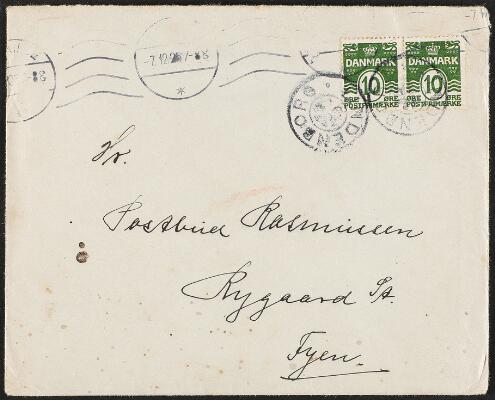 7.12.25 7-8
DANMARK DANMARK
10 10
ØRE ØRE ØRE ØRE
POSTFRIMÆRKE POSTFRIMÆRKE
Hr.
Postbud Rasmussen
Rygaard St.
Fyen.